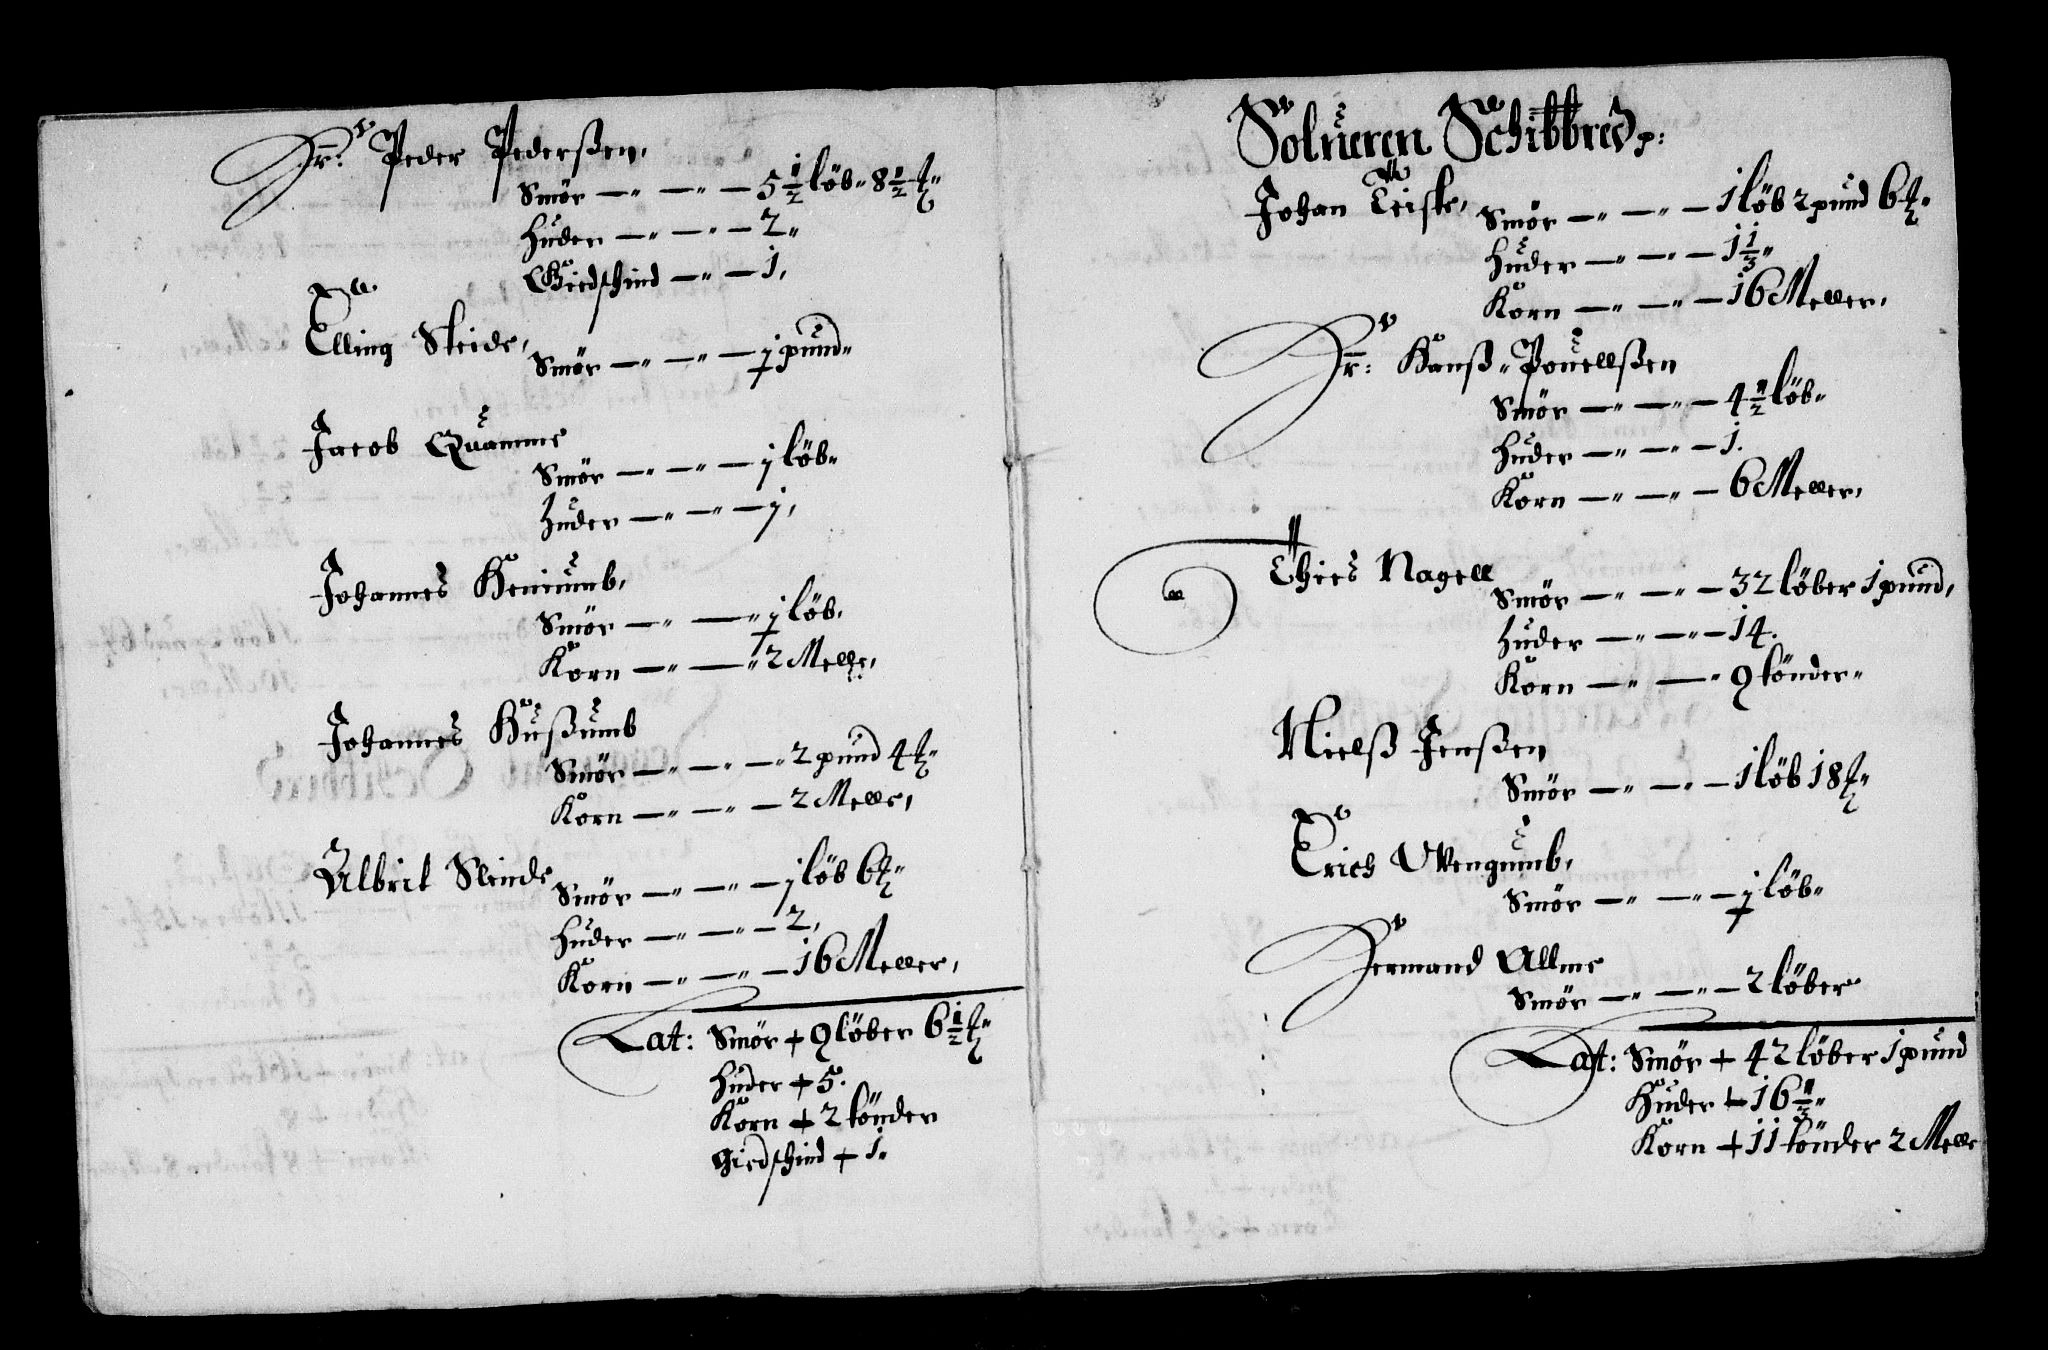 Hr: Peder Pederßen,
Smör — — — 5 1/2 löb 8 1/2 ℔
Huder — — — 2
Giedschind — — 1,
Elling Skeide,
Smör — — — j pund
Jacob Quamme
Smör — — — j löb
Huder — — — j,
Johannes Heniumb,
Smör — — j löb,
Korn — — 2 Melle,
Johannes Hußumb
Smör — — — 2 pund 4 ℔
Korn — — — 2 Melle,
Albrit Slinde
Smör — — — j löb 6 ℔
Huder — — — 2,
Korn — — — 16 Meller,
Lat: Smör + 9 löber 6 1/2 ℔
Huder + 5.
Korn + 2 tönder
Giedschind + 1.
Solueren Schibbred:
Johan Teiste,
Smör — — — 1 löb 2 pund 6 ℔
Huder — — — 1 1/3
Korn — — — 16 Meller,
Hr: Hanß Pouellßen
Smör — — — 4 1/2 löb
Huder — — — 1.
Korn — — — 6 Meller,
Thies Nagell
Smör — — — 32 löber 1 pund,
Huder — — — 14.
Korn — — 9 tönder
Nielß Jenßen
Smör — — — 1 löb 18 ℔
Erich Wengumb,
Smör — — — j löb
Hermand Allme
Smör — — — 2 löber
Lat: Smör + 42 löber 1 pund
Huder + 16 1/3
Korn + 11 tönder 2 Melle